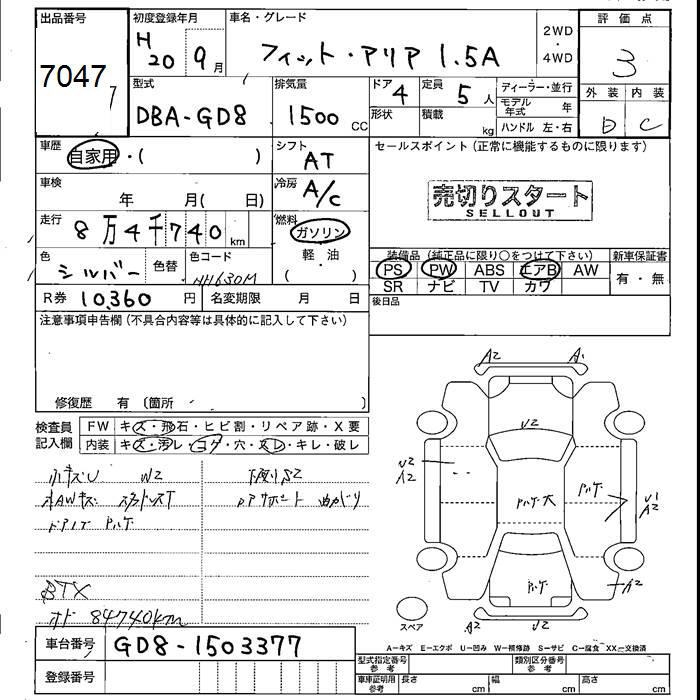 出品番号 初度登録年月 車名・グレード 評価点
7047 H20 9月 フィット・アリア 1.5A 2WD・4WD 3
7
型式 排気量 ドア 定員 ディーラー・並行 外装 内装
DBA-GD8 1500CC 4 5人 モデル年式 年 C
形状 積載 kg ハンドル 左・右
車歴 シフト セールスポイント(正常に機能するものに限ります)
自家用・( ) AT
車検 冷房
年 月( 日) A/C
売切りスタート
SELLOUT
走行 燃料
8万4千740km ガソリン
軽・油
色 シルバー 色替 色コード NH630M
装備品(純正品に限り○をつけて下さい) 新車保証書
PS PW ABS エアB AW 有・無
SR ナビ TV カワ
R券 10,360円 名変期限 月 日
後日品
注意事項申告欄(不具合内容等は具体的に記入して下さい)
修復歴 有〔箇所 〕
検査員記入欄
FW キズ・飛石・ヒビ割・リペア跡・X要
内装 キズ・汚レ・コゲ・穴・スレ・キレ・破レ
小キズU W2 下廻りS2
AAWキズ
ドアノブ ハゲ
BTX
オド 84740km
A2 A1
U2
U2
A2
ハゲ大
ハゲ
U1
A2
ハゲ
A2
A2 U2
スペア
A－キズ E－エクボ U－凹み W－補修跡 S－サビ C－腐食 XX－交換済
車台番号 GD8-1503377
登録番号
型式指定番号 参考 類別区分番号 参考
車庫証明用 参考 長さ cm 幅 cm 高さ cm